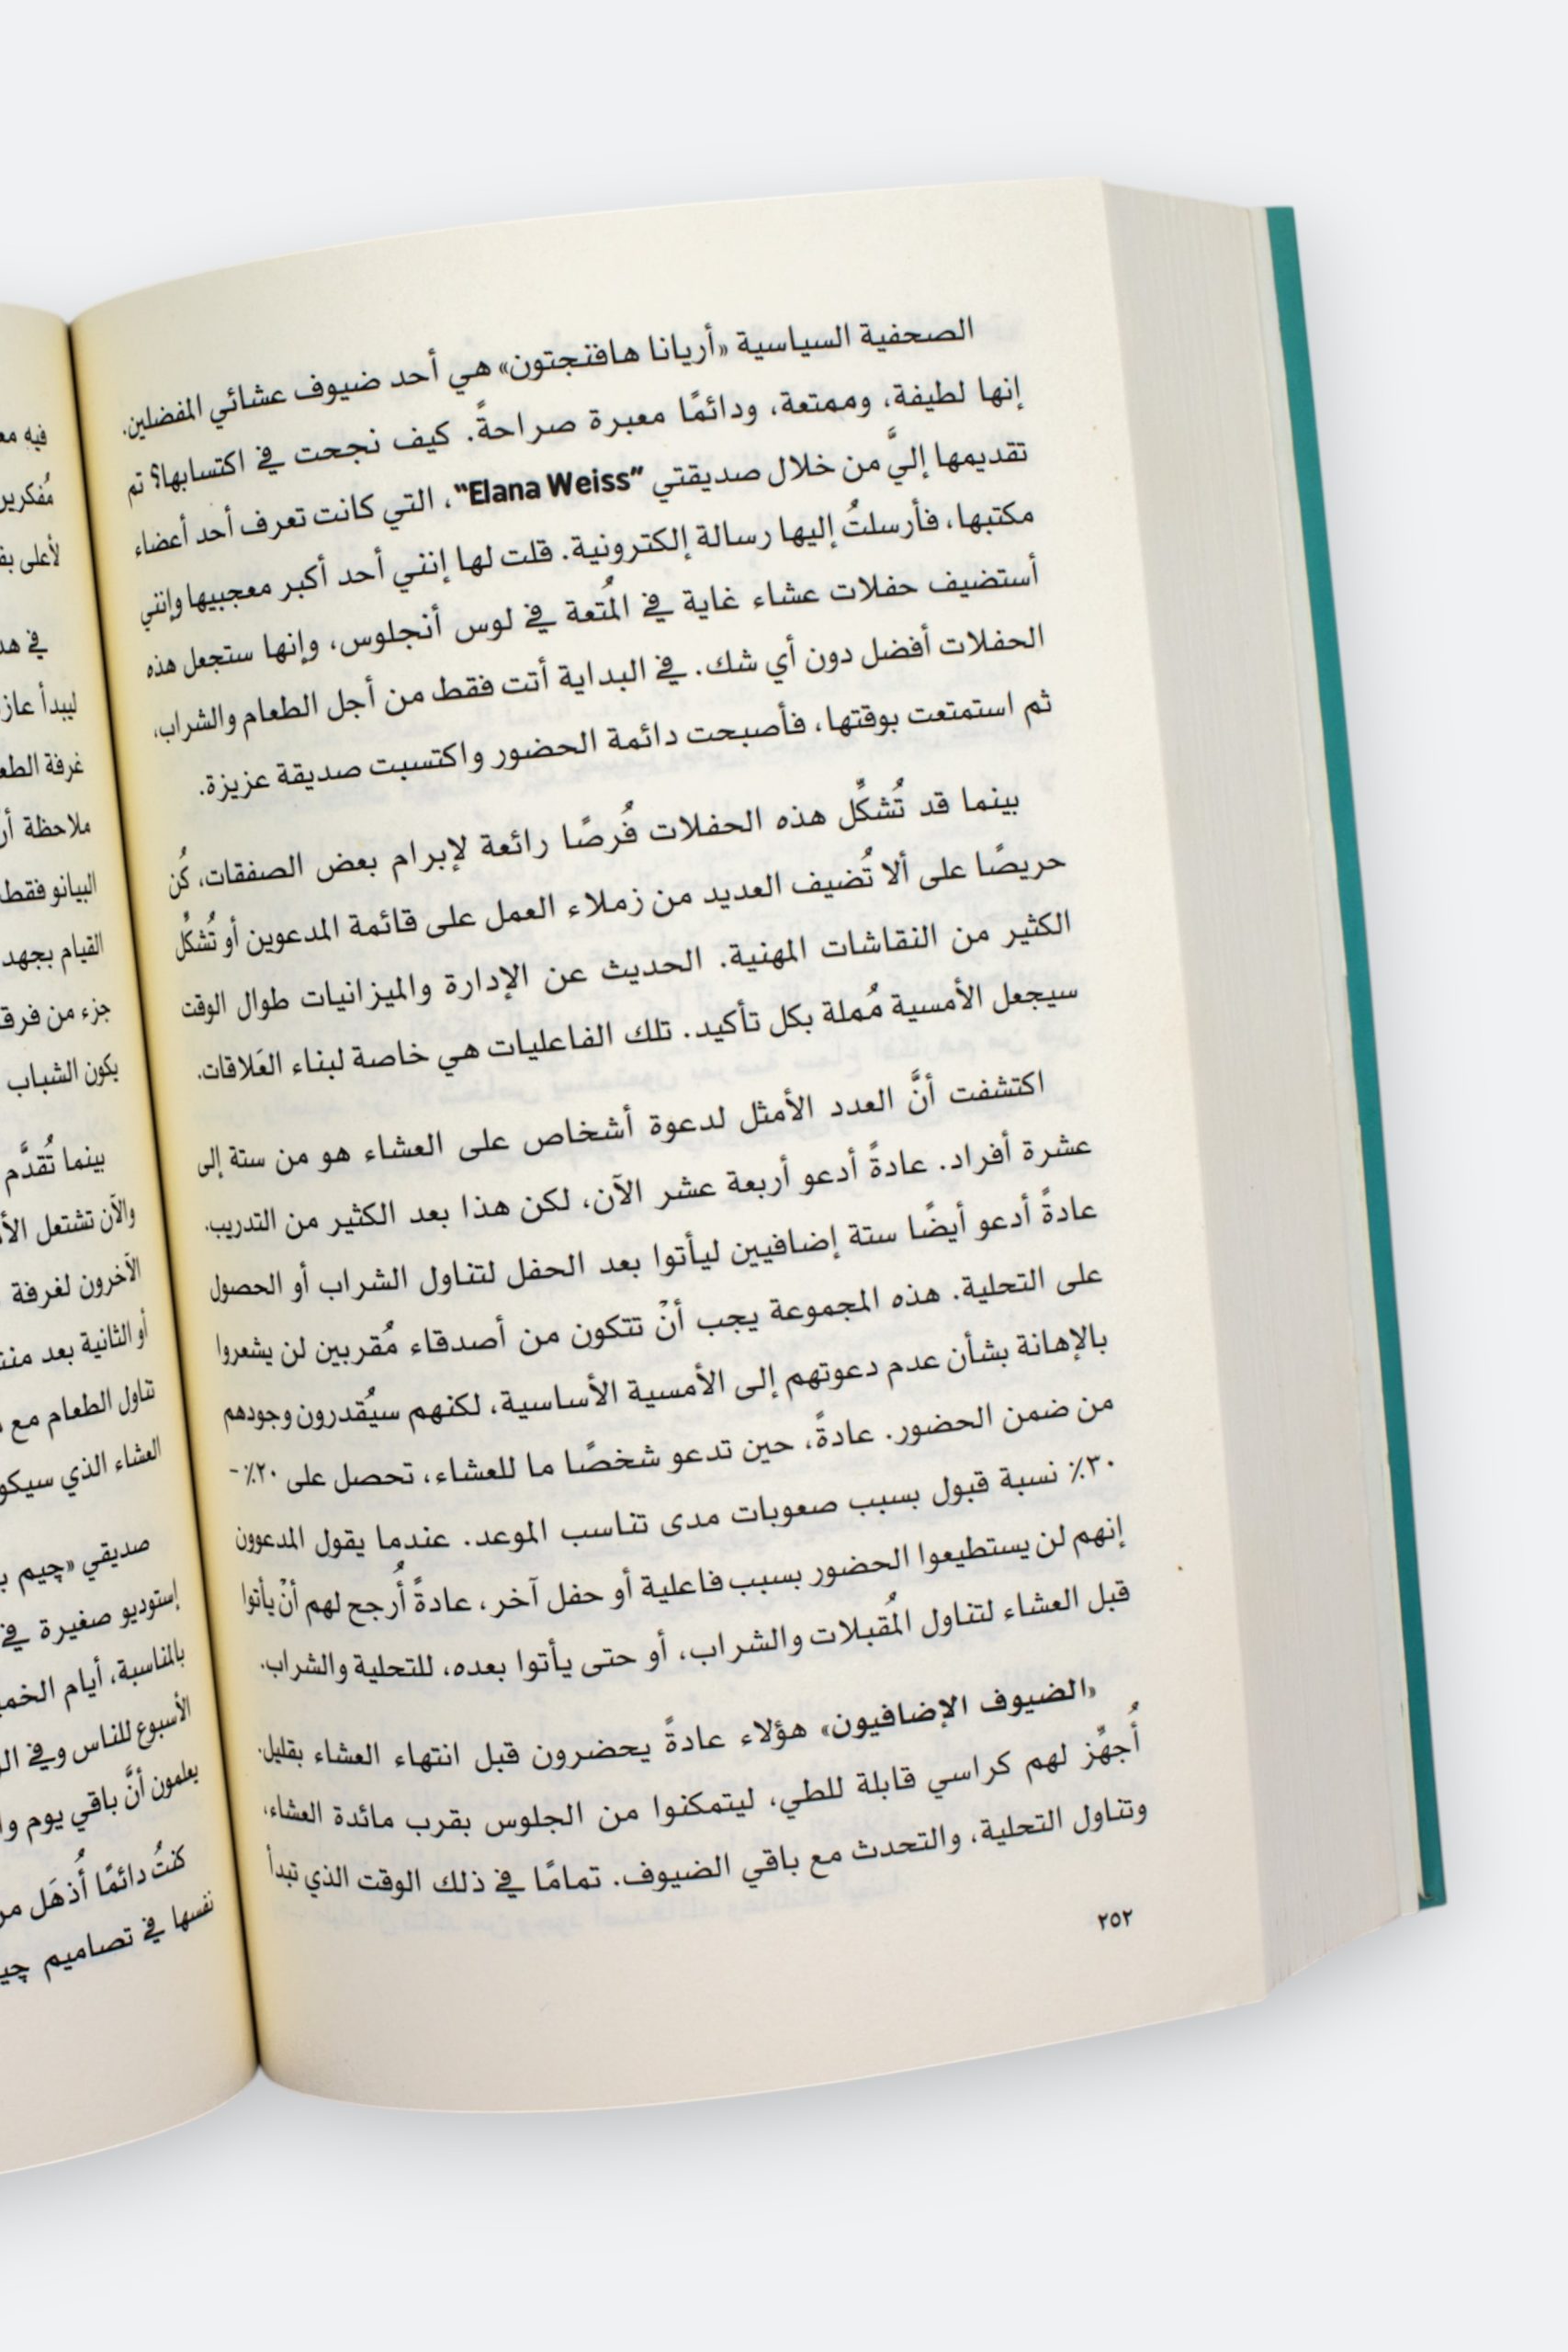 الصحفية السياسية «أريانا هافنجتون» هي أحد ضيوف عشائي المفضلين.
إنها لطيفة، وممتعة، ودائمًا معبرة صراحةً. كيف نجحت في اكتسابها؟ تم
تقديمها إليَّ من خلال صديقتي "Elana Weiss"، التي كانت تعرف أحد أعضاء
مكتبها، فأرسلتُ إليها رسالة إلكترونية. قلت لها إنني أحد أكبر معجبيها وإنني
أستضيف حفلات عشاء غاية في المُتعة في لوس أنجلوس، وإنها ستجعل هذه
الحفلات أفضل دون أي شك. في البداية أتت فقط من أجل الطعام والشراب،
ثم استمتعت بوقتها، فأصبحت دائمة الحضور واكتسبت صديقة عزيزة.
بينما قد تُشكِّل هذه الحفلات فُرصًا رائعة لإبرام بعض الصفقات، كُن
حريصًا على ألا تُضيف العديد من زملاء العمل على قائمة المدعوين أو تُشكِّل
الكثير من النقاشات المهنية. الحديث عن الإدارة والميزانيات طوال الوقت
سيجعل الأمسية مُملة بكل تأكيد. تلك الفاعليات هي خاصة لبناء العَلاقات.
اكتشفت أنَّ العدد الأمثل لدعوة أشخاص على العشاء هو من ستة إلى
عشرة أفراد. عادةً أدعو أربعة عشر الآن، لكن هذا بعد الكثير من التدريب.
عادةً أدعو أيضًا ستة إضافيين ليأتوا بعد الحفل لتناول الشراب أو الحصول
على التحلية. هذه المجموعة يجب أنْ تتكون من أصدقاء مُقربين لن يشعروا
بالإهانة بشأن عدم دعوتهم إلى الأمسية الأساسية، لكنهم سيُقدرون وجودهم
من ضمن الحضور. عادةً، حين تدعو شخصًا ما للعشاء، تحصل على ٢٠٪ -
٣٠٪ نسبة قبول بسبب صعوبات مدى تناسب الموعد. عندما يقول المدعوون
إنهم لن يستطيعوا الحضور بسبب فاعلية أو حفل آخر، عادةً أُرجح لهم أنْ يأتوا
قبل العشاء لتناول المُقبلات والشراب، أو حتى يأتوا بعده، للتحلية والشراب.
«الضيوف الإضافيون» هؤلاء عادةً يحضرون قبل انتهاء العشاء بقليل.
أُجهِّز لهم كراسي قابلة للطي، ليتمكنوا من الجلوس بقرب مائدة العشاء،
وتناول التحلية، والتحدث مع باقي الضيوف. تمامًا في ذلك الوقت الذي تبدأ
٢٥٢
فيه
لأعلى
في
ليبدأ
غرفة
ملاحظة
البيانو فقط
القيام بجهد
جزء من
يكون الشباب
بينما تُقدَّم
والآن تشتعل
الآخرون لغرفة
أو الثانية بعد
تناول الطعام مع
العشاء الذي
صديقي «چيم
إستوديو صغيرة في
بالمناسبة، أيام
الأسبوع للناس وفي
يعلمون أنَّ باقي يوم
كنتُ دائمًا أُذهَل
نفسها في تصاميم